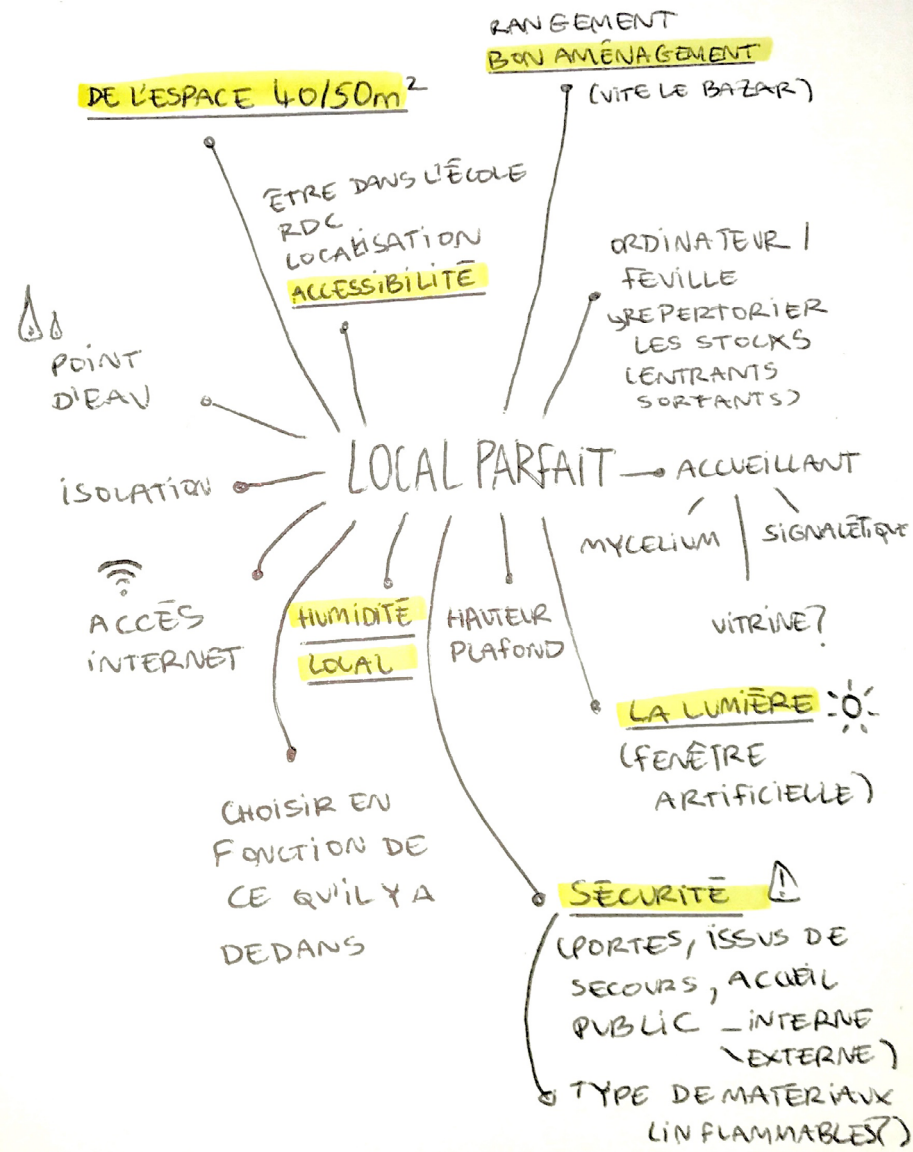 RANGEMENT
BON AMÉNAGEMENT
(VITE LE BAZAR)
DE L'ESPACE 40/50m²
ÊTRE DANS L'ÉCOLE
RDC
LOCALISATION
ACCESSIBILITÉ
ORDINATEUR /
FEUILLE
↳REPERTORIER
LES STOCKS
(ENTRANTS
SORTANTS)
POINT
D'EAU
LOCAL PARFAIT
ACCUEILLANT
MYCELIUM
SIGNALÉTIQUE
VITRINE?
ISOLATION
ACCÈS
INTERNET
HUMIDITÉ
LOCAL
HAUTEUR
PLAFOND
LA LUMIÈRE
(FENÊTRE
ARTIFICIELLE)
CHOISIR EN
FONCTION DE
CE QU'IL Y A
DEDANS
SÉCURITÉ
(PORTES, ISSUS DE
SECOURS, ACCUEIL
PUBLIC - INTERNE
\ EXTERNE)
TYPE DE MATÉRIAUX
(INFLAMMABLES?)